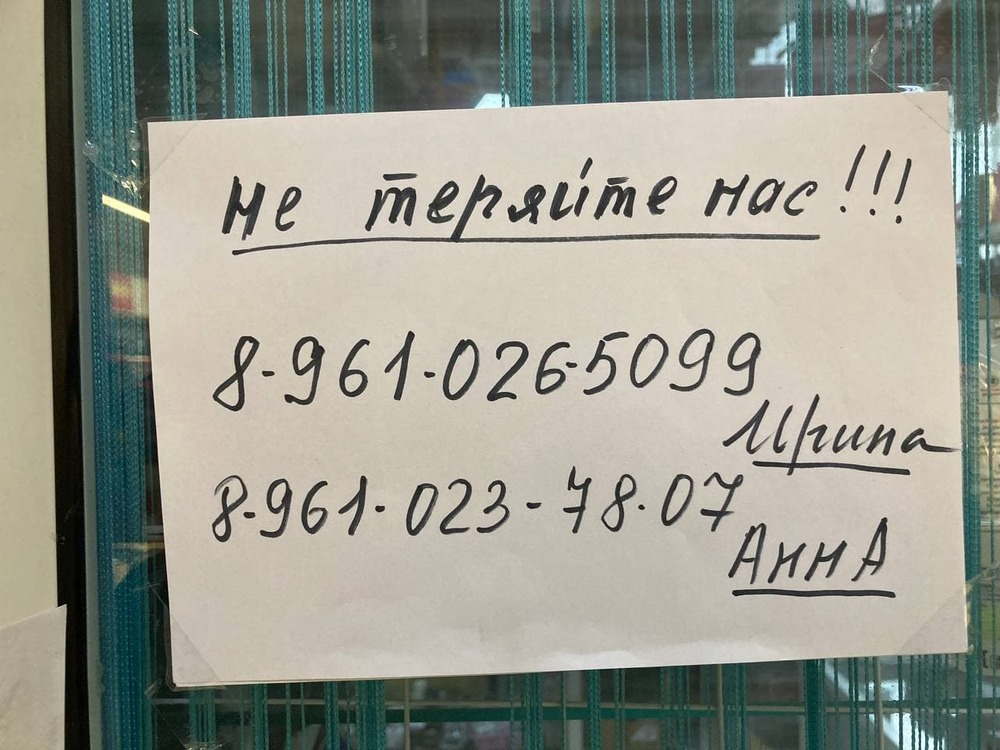 Не теряйте нас!!!
8-961-026-5099
Ирина
8-961-023-78-07
АннА